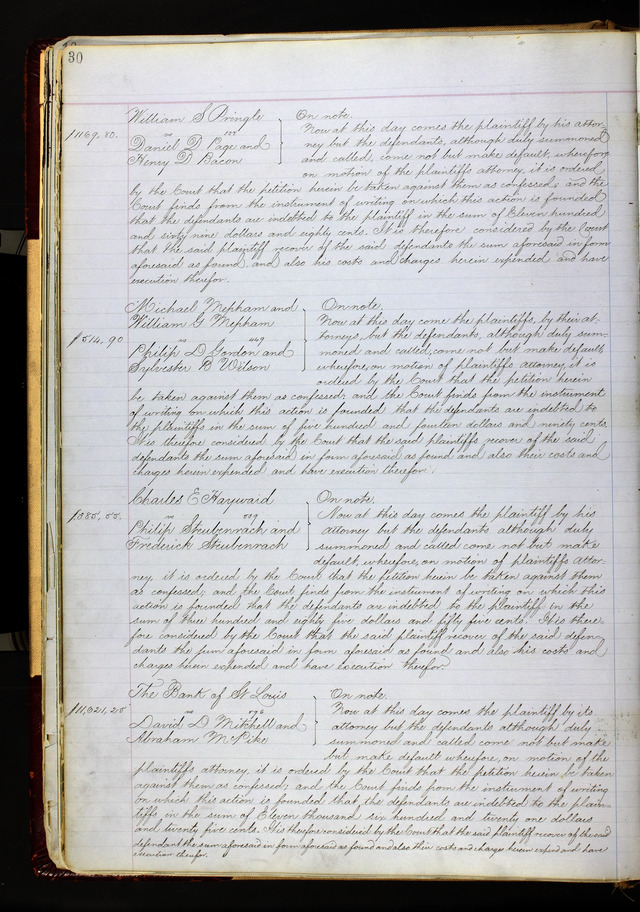 30
William S Pringle } On note.
$1169.80. vs 
Now at this day comes the plaintiff by his attor-
Daniel D. Page and
ney but the defendants, although duly summoned
Henry D. Bacon
and called, come not but make default, wherefore
on motion of the plaintiffs attorney, it is ordered
by the Court that the petition herein be taken against them as confessed, and the
Court finds from the instrument of writing on which this action is founded
that the defendants are indebted to the plaintiff in the sum of Eleven hundred
and sixty nine dollars and eighty cents. It is therefore considered by the Court
that the said plaintiff recover of the said defendants the sum aforesaid in form
aforesaid as found and also his costs and charges herein expended and have
execution therefor.
Michael Mepham and } On note.
William G Mepham
Now at this day come the plaintiffs, by their at-
$514.90 vs 449
torneys, but the defendants, although duly sum-
Philip D Gordon and
moned and called, come not but make default
Sylvester R Wilson
wherefore, on motion of plaintiffs attorney, it is
ordered by the Court that the petition herein
be taken against them as confessed; and the Court finds from the instrument
of writing on which this action is founded that the defendants are indebted to
the plaintiffs in the sum of five hundred and fourteen dollars and ninety cents.
It is therefore considered by the Court that the said plaintiffs recover of the said
defendants the sum aforesaid in form aforesaid as found and also their costs and
charges herein expended and have execution therefor.
Charles E Hayward } On note.
$385.55. vs 
Now at this day comes the plaintiff by his
Philip Steubenrach and
attorney but the defendants although duly
Frederick Steubenrach
summoned and called come not but make
default, wherefore, on motion of plaintiffs attor-
ney, it is ordered by the Court that the petition herein be taken against them
as confessed; and the Court finds from the instrument of writing on which this
action is founded that the defendants are indebted to the plaintiff in the
sum of three hundred and eighty five dollars and fifty five cents. It is there-
fore considered by the Court that the said plaintiff recover of the said defen-
dants the sum aforesaid in form aforesaid as found and also his costs and
charges herein expended and have execution therefor.
The Bank of St Louis } On note.
$11,621.25 vs 
Now at this day comes the plaintiff by its
David D Mitchell and
attorney but the defendants although duly
Abraham McPike
summoned and called come not but make
but make default wherefore, on motion of the
plaintiffs attorney, it is ordered by the Court that the petition herein be taken
against them as confessed; and the Court finds from the instrument of writing
on which this action is founded that the defendants are indebted to the plain-
tiffs in the sum of Eleven thousand six hundred and twenty one dollars
and twenty five cents. It is therefore considered by the Court that the said plaintiff recover of the said
defendant the sum aforesaid in form aforesaid as found and also their costs and charges herein expend and have
execution therefor.